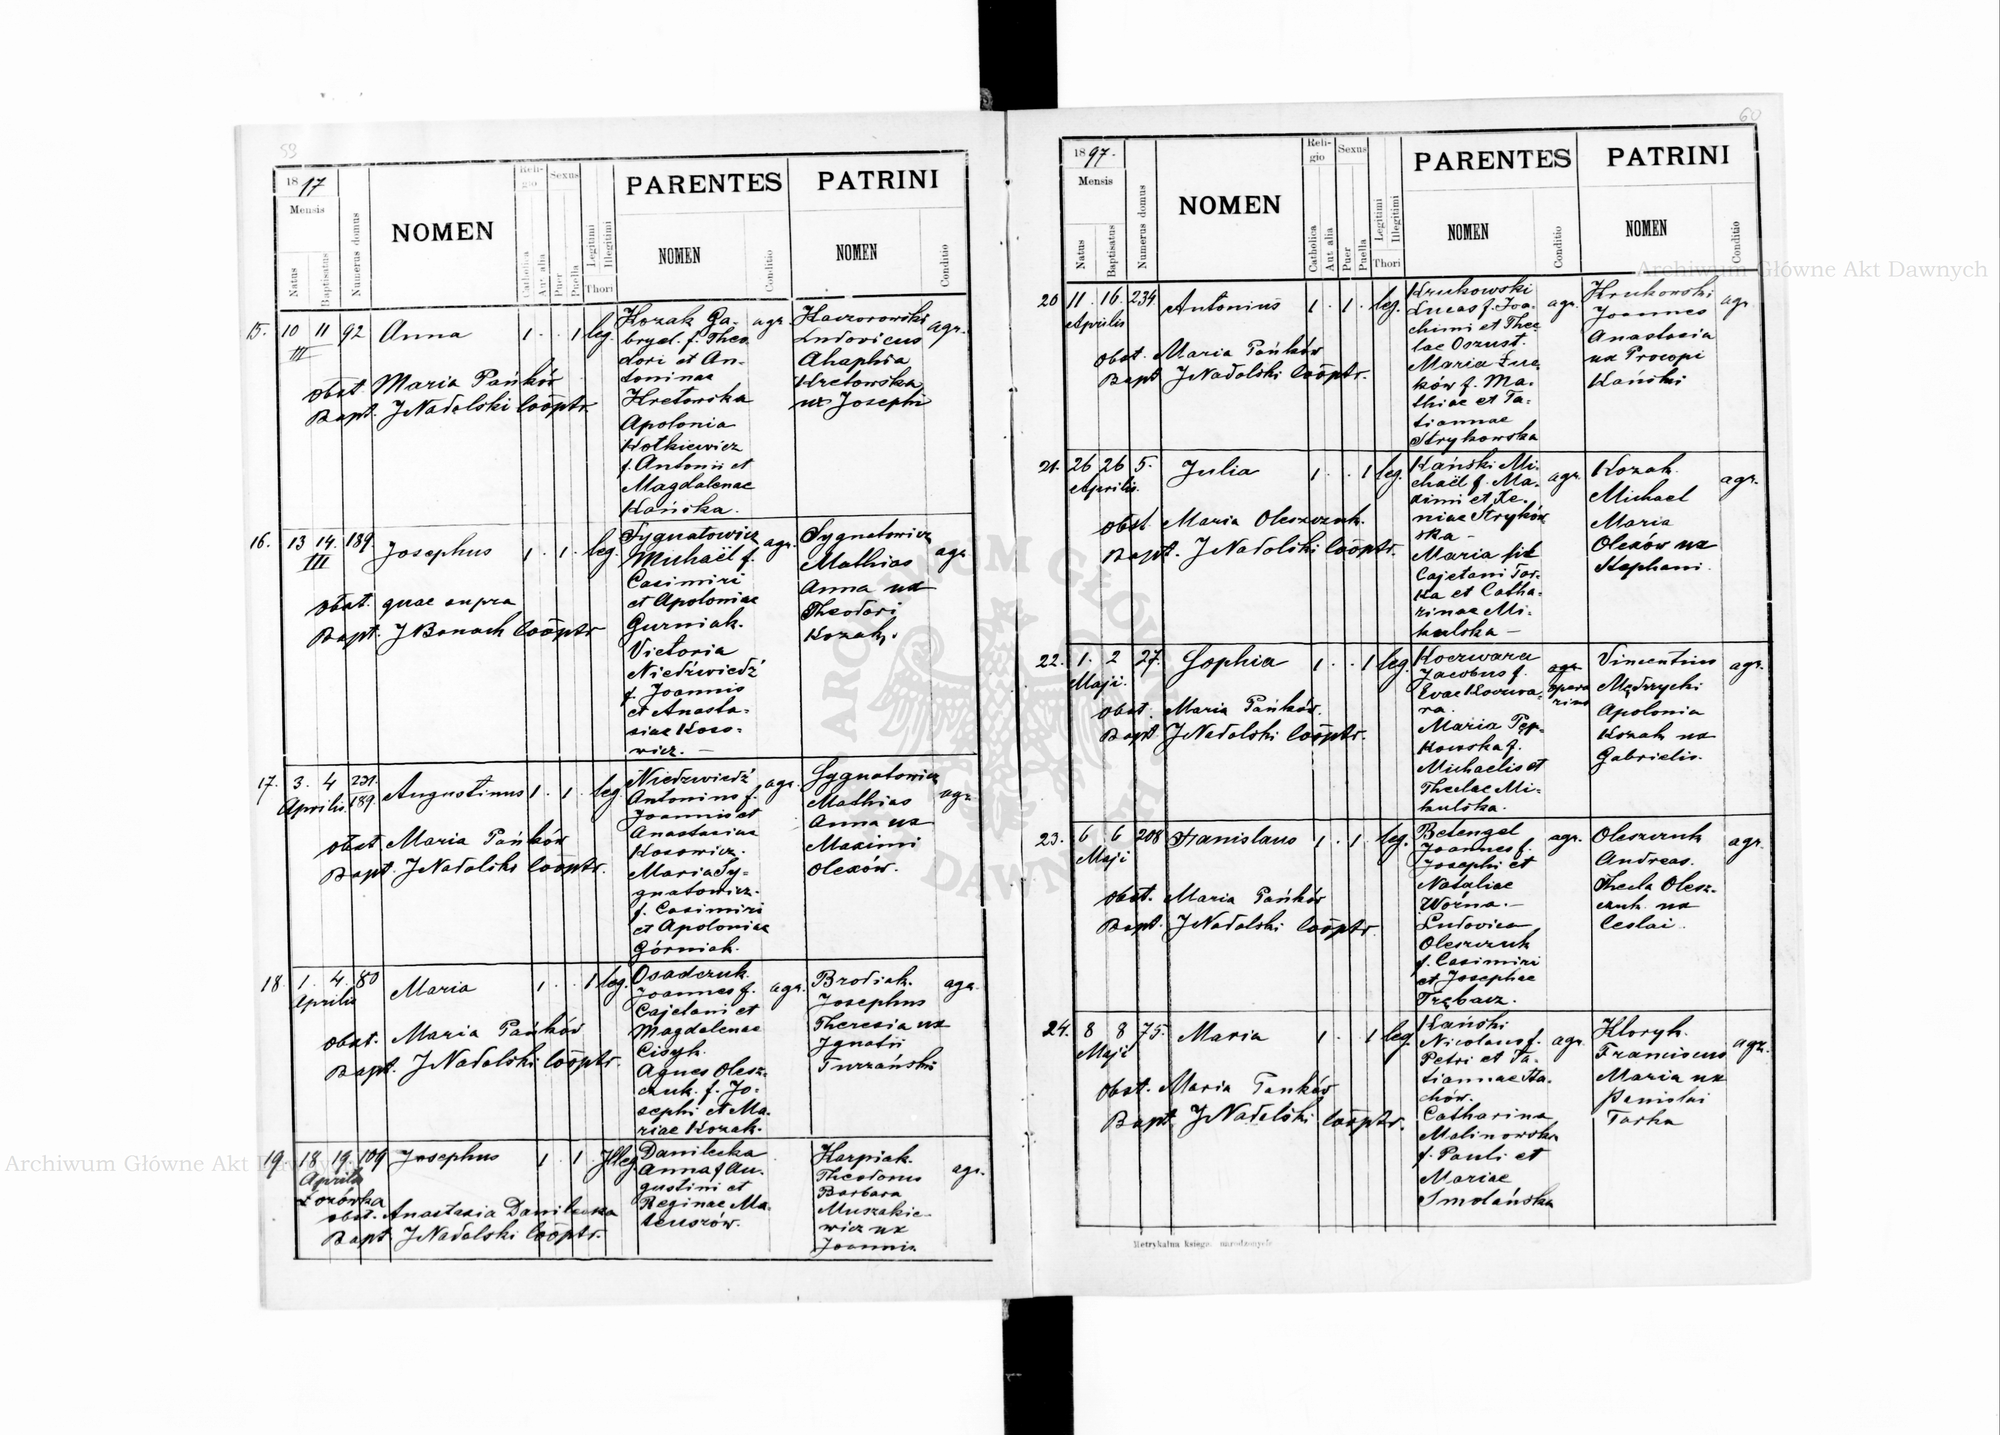 59
1897
Mensis
Natus
Baptisatus
Numerus domus
NOMEN
Religio
Catholica
Aut alia
Sexus
Puer
Puella
Legitimi
Illegitimi
Thori
PARENTES
NOMEN
Conditio
PATRINI
NOMEN
Conditio
15. 10 11 92 Anna 1 . . 1 leg.
III
obst. Maria Pańków
Bapt. J Nadolski Cooptr.
Kozak Ga-
bryel. f. Theo-
dori et An-
toninae
Hretowska
Apolonia
Kotkiewicz
f. Antonii et
Magdalenae
Kańska.
agr.
Kaczorowski
Ludovicus
Ahaphia
Kretowska
ux Josephi
agr.
16. 13 14. 189. Josephus 1 . 1 . leg.
III
obst. quae supra
Bapt. J Banach Cooptr
Sygnatowicz
Michaël f.
Casimiri
et Apoloniae
Gurniak.
Victoria
Niedźwiedź
f. Joannis
et Anasta-
siae Koso-
wicz. —
agr.
Sygnatowicz
Mathias
Anna ux
Theodori
Kozak.
agr
17. 3. 4 231. Augustinus 1 . 1 . leg.
Aprilis 189.
obst. Maria Pańków
Bapt. J Nadolski Cooptr.
Niedzwiedź
Antonius f.
Joannis et
Anastasiae
Kosowicz.
Maria Sy-
gnatowicz.
f. Casimiri
et Apoloniae
Górniak.
agr.
Sygnatowicz
Mathias
Anna ux
Maximi
Olexów.
agr.
18. 1. 4. 80 Maria 1 . . 1 leg.
Aprilis
obst. Maria Pańków
Bapt. J Nadolski Cooptr.
Osadczuk
Joannes f.
Cajetani et
Magdalenae
Cisyk.
Agnes Olesz-
czuk. f. Jo-
sephi et Ma-
riae Kozak.
agr.
Brodiak.
Josephus
Theresia ux
Ignatii
Turzański
agr.
19. 18. 19. 109 Josephus 1 . 1 . Illeg.
Aprilis
Łozówka
obst. Anastasia Danilecka
Bapt. J Nadolski Cooptr.
Danilecka
Anna f Au-
gustini et
Reginae Ma-
teuszów.
Karpiak.
Theodorus
Barbara
Muszakie-
wicz ux
Joannis.
agr.
60
1897.
Mensis
Natus
Baptisatus
Numerus domus
NOMEN
Religio
Catholica
Aut alia
Sexus
Puer
Puella
Legitimi
Illegitimi
Thori
PARENTES
NOMEN
Conditio
PATRINI
NOMEN
Conditio
20 11. 16. 234 Antonius 1 . 1 . leg.
Aprilis
obst. Maria Pańków
Bapt J Nadolski Cooptr.
Krukowski
Lucas f. Joa-
chimi et The-
clae Oszust.
Maria
ków f. Ma-
thiae et Ta-
tiannae
Strykowska
agr.
Krukowski
Joannes
Anastasia
ux Procopi
Kański
agr.
21. 26 26 5. Julia 1 . . 1 leg.
Aprilis.
obst. Maria Oleszczuk.
Bapt. J Nadolski Cooptr.
Kański Mi-
chaël f. Ma-
ximi et Xe-
niae Stryków-
ska —
Maria fil
Cajetani Tar-
ka et Catha-
rinae Mi-
kulska —
agr.
Kozak.
Michael
Maria
Olexów ux
Stephani.
agr.
22. 1. 2 27. Sophia 1 . . 1 leg.
Maji.
obst. Maria Pańków.
Bapt J Nadolski Cooptr.
Koczwara
Jacobus f.
Evae Koczwa-
ra.
Maria Pęp-
kowska f.
Michaelis et
Theclae Mi-
kulska.
agr.
opera
rius
Vincentius
Mędrzycki
Apolonia
Kozak ux
Gabrielis.
agr.
23. 6 6 208 Stanislaus 1 . 1 . leg.
Maji
obst. Maria Pańków
Bapt. J Nadolski Cooptr.
Betengel
Joannes f.
Josephi et
Nataliae
Woźna. —
Ludovica
Oleszczuk
f. Casimiri
et Josephae
Trębacz.
agr.
Oleszczuk
Andreas.
Thecla Olesz-
czuk ux
Ceslai.
agr.
24. 8 8 75. Maria 1 . . 1 leg.
Maji
obst. Maria Pańków
Bapt. J Nadolski Cooptr.
Kański
Nicolaus f.
Petri et Ta-
tiannae Sta-
chów.
Catharina
Malinowska
f. Pauli et
Mariae
Smolańska
agr.
Kloryk.
Franciscus
Maria ux
Stanislai
Tarka
agr.
Metrykalna księga narodzonych
Archiwum Główne Akt Dawnych
Archiwum Główne Akt Dawnych
ARCHIWUM GŁÓWNE AKT DAWNYCH